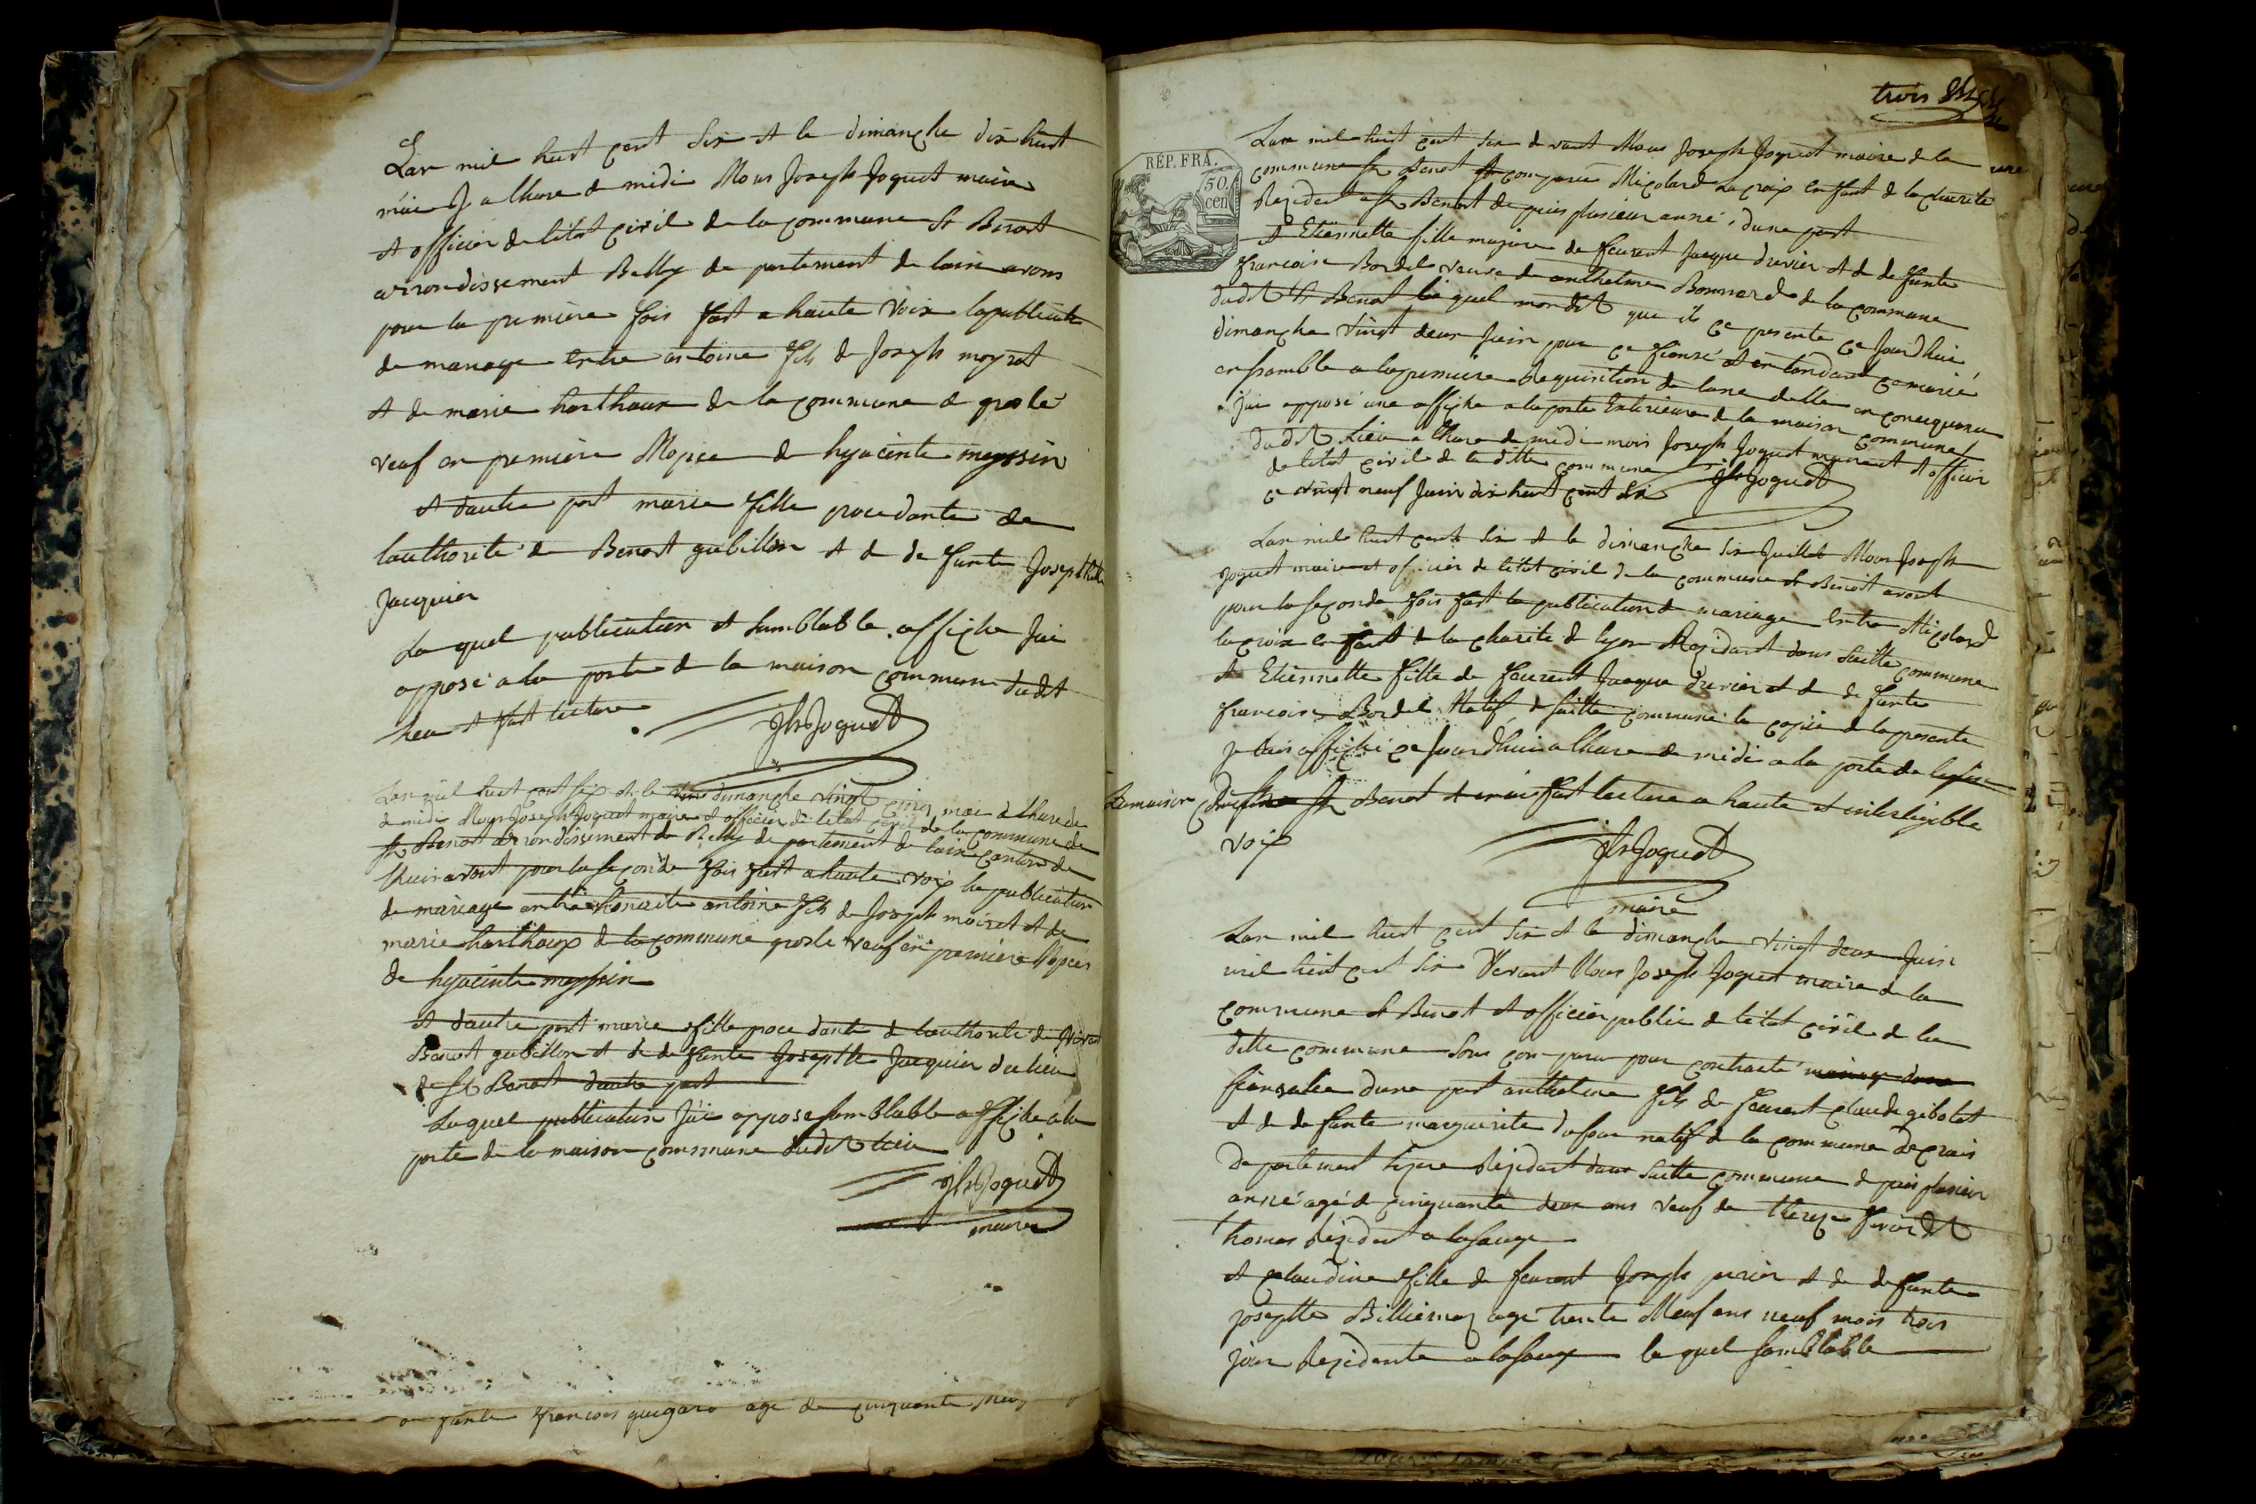 Lan mil huit cent six et le dimanche dix huit
mai J a lheure de midi Nous Joseph Joguet maire
et officier de létat civil de la commune St Benoit
arrondissement Belley departement de lain avons
pour la premiere fois fait a haute voix la publication
de mariage entre antoine fils de Joseph moyret
et de marie harthaux de la commune de grolé
veuf en premiere Nopce de hyacinte meyssin
et dautre part marie fille procedante de
lauthorité de Benoit gubillon et de defunte Josephthe
Jacquier
La quel publication et semblable affiche Jai
apposé a la porte de la maison commune dudit
lieu et fait lecture
Jh Joguet
Lan mil huit cent six et le dimanche vingt cinq mai a lheure de
de midi Nous Joseph Joguet maire et officier de létat civil de la commune de
St Benoit arrondissement de Belley departement de lain canton de
lhuis avons pour la seconde fois fait a haute voix la publication
de mariage entre honnete antoine fils de Joseph moiret et de
marie harthaux de la commune grolé veuf en premiere Nopces
de hyacinte meyssin
et dautre part marie fille procedante de lauthorité de
Benoit gubillon et de defunte Josepthe Jacquier du lieu
de St Benoit dautre part
Laquel publication Jai apposé semblable affiche a la
porte de la maison commune dudit lieu
Jh Joguet
maire
defunte francois guigard agé de cinquante
trois
RÉP. FRA.
50
cen
Lan mil huit cent six devant Nous Joseph Joguet maire de la
commune St Benoit est comparu Nicolard Lacroix enfant de la charité
Rezidant a St Benoit depuis plusieur anné, dune part
et Etiennette fille majeure de feu Jacque druvier et de defunte
francoise Bordel veuve de anthelme Bonnard de la commune
dudit St Benoit lequel mondit que il ce presente ce Jourdhui
dimanche vingt deux Juin pour ce fiansé et en tandant ce marié
ensemble a la premiere Requisition de lune delle en consequence
Jai apposé une affiche a la porte Exterieure de la maison commune
dudit Lieu a lheure de midi mois Joseph Joguet maire et officier
de létat civil de la ditte commune
ce vingt neuf Juin dix huit cent six Jh Joguet
Lan mil huit cent six et le dimanche six Juillet Nous Joseph
Joguet maire et officier de létat civil de la commune St Benoit avont
pour la seconde fois fait la publication de mariage Entre Nicolard
lacroix enfant de la charité de lyon Rezidant dans saitte commune
et Etiennette fille de feu Jacque druvier et de defunte
francoise Bordel Natif de saitte commune la copie de la presente
Je lais affiché ce Jourdhui a lheure de midi a la porte de leglise
La maison commune St Benoit et en ais fait lecture a haute et intelligible
voix
Jh Joguet
maire
Lan mil huit cent six et le dimanche vingt deux Juin
mil huit cent six Devant Nous Joseph Joguet maire de la
commune St Benoit et officier public de létat civil de la
ditte commune sons comparu pour contracté mariage dune
fiansalie dune part anthelme fils de feu claude gibolet
et de defunte marguerite dufour natif de la commune de crais
departement lizere Rezidant dans saitte commune depuis plusieur
anné agé de cinquante deux ans veuf de thereze
thomas Rezidant a lasauge
et claudine fille de feu Joseph perier et de defunte
josepthe Billiemaz agé trente Neuf ans neuf mois trois
jour Rezidente a lasauge le quel semblable